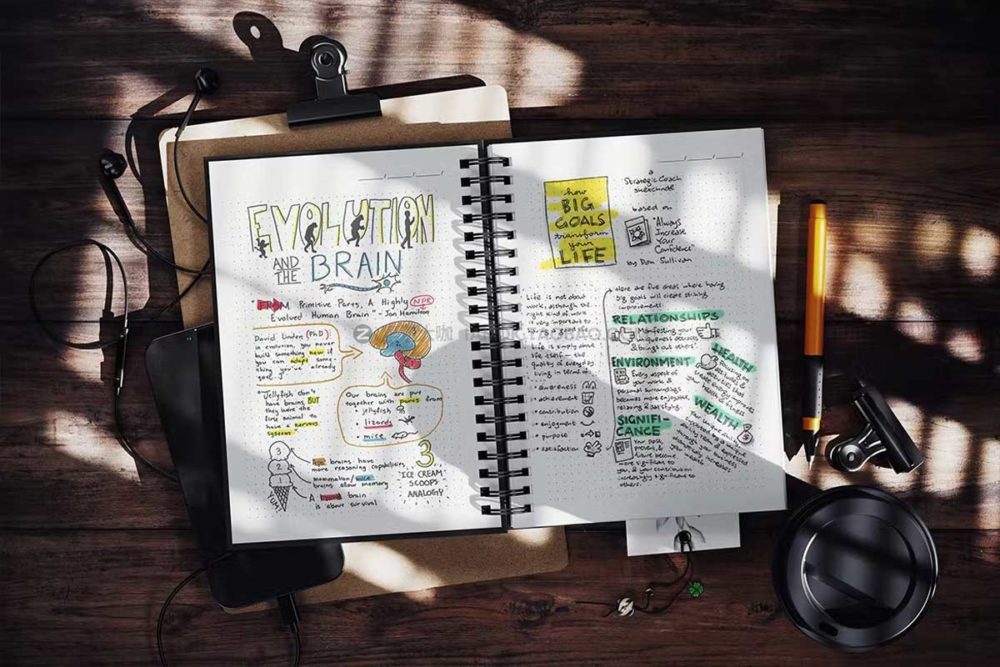 EVOLUTION
AND THE BRAIN
"FROM Primitive Parts, A Highly
Evolved Human Brain" - Jon Hamilton
NPR
David Linden (PhD)
in evolution, you never
build something new if
you can adapt some-
thing you've already
got.
"Jellyfish don't
have brains BUT
they were the
first animal to
have a nervous
system."
Our brains are put
together with parts from
• jellyfish
• lizards
• mice
3
2
1
YUM
brains have
more reasoning capabilities
mammalian/mice
brains allow memory
A brain
is about survival
3
"ICE CREAM
SCOOPS
ANALOGY"
how
BIG
GOALS
transform
your
LIFE
a
Strategic Coach
sketchnote
based on
"Always
Increase
Your
Confidence"
by Dan Sullivan
Life is not about
work, although the
right kind of work
is very important to
life
life itself — the
quality of everyday
living in terms of
• awareness
• achievement
• contribution
• enjoyment
• purpose
• satisfaction
Here are five areas where having
big goals will create striking
improvements:
RELATIONSHIPS
Manifesting your
uniqueness attracts
& brings out others'
HEALTH
ENVIRONMENT
Every aspect of
your work &
personal surroundings
becomes more enjoyable,
relaxing & satisfying.
WEALTH
SIGNIFI-
CANCE
Your past,
present, &
future become
more significant to
you, & your contribution
increasingly significant to
others.